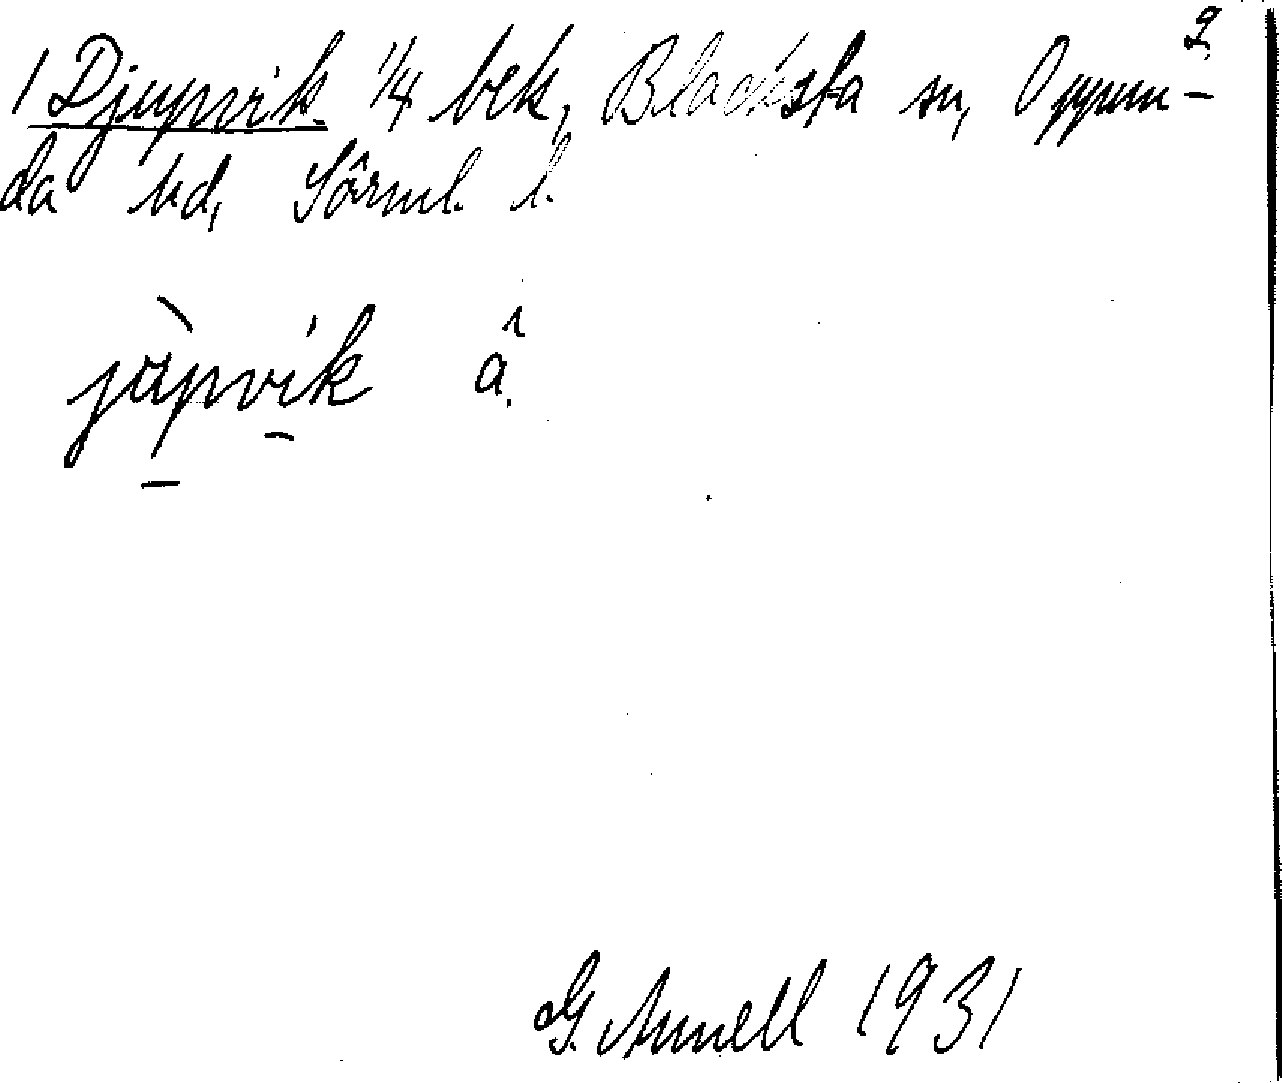 2
1 Djupvik. 1/4 bek, Blacksta sn, Oppun-
da hd, Sörml. l.
jùpvik å
G. Annell 1931